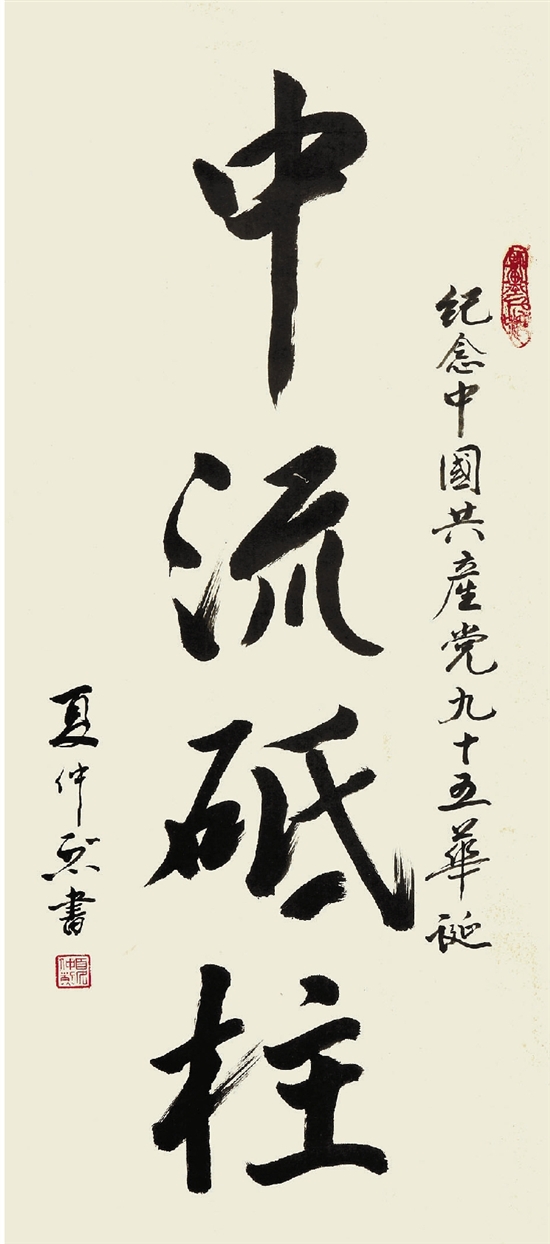 纪念中國共産党九十五華诞
中流砥柱
夏仲書